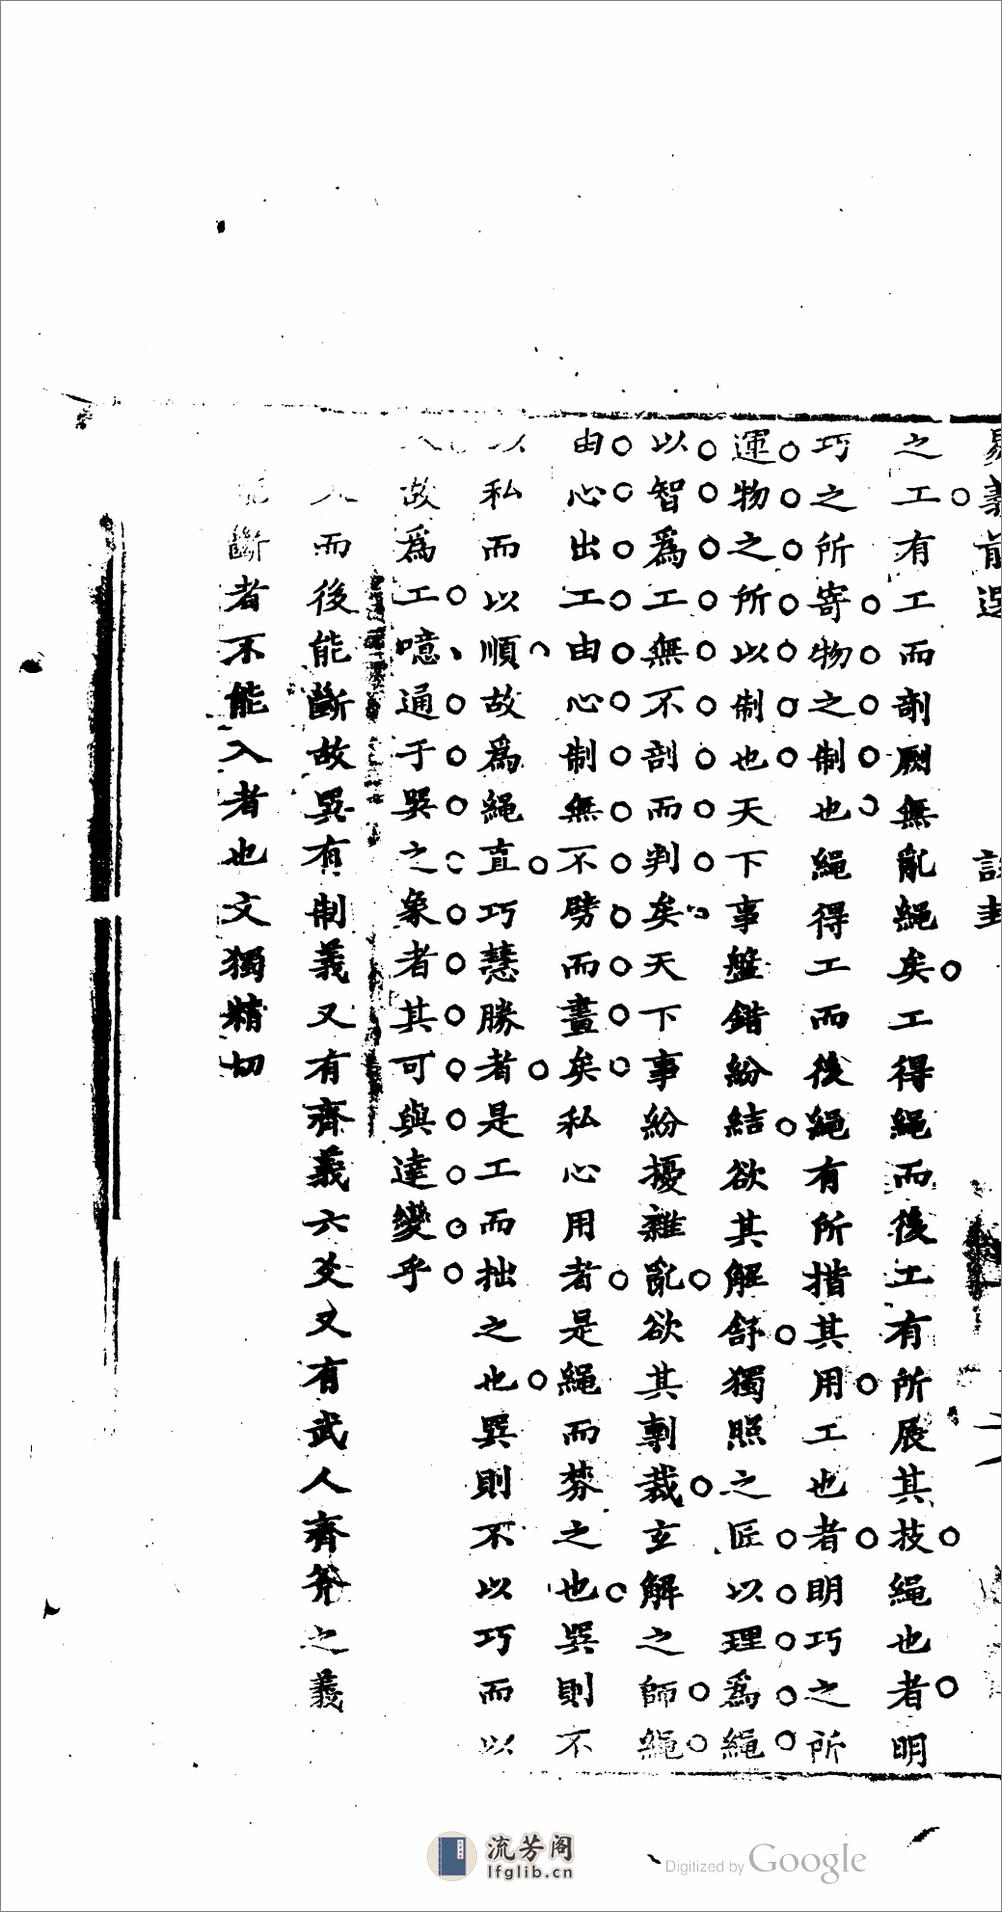 易義前選
説卦
之工有工而剖劂無亂繩矣工得繩而後工有所展其技繩也者明
巧之所寄物之制也繩得工而後繩有所措其用工也者明巧之所
運物之所以制也天下事盤錯紛結欲其解舒獨照之匠以理爲繩
以智爲工無不剖而判矣天下事紛擾雜亂欲其剸裁玄解之師繩
由心出工由心制無不劈而畫矣私心用者是繩而棼之也巽則不
以私而以順故爲繩直巧慧勝者是工而拙之也巽則不以巧而以
入故爲工噫通于巽之象者其可與達變乎
入而後能斷故巽有制義又有齊義六爻又有武人齊斧之義
斷者不能入者也文獨精切
流芳阁
lfglib.cn
Digitized by Google